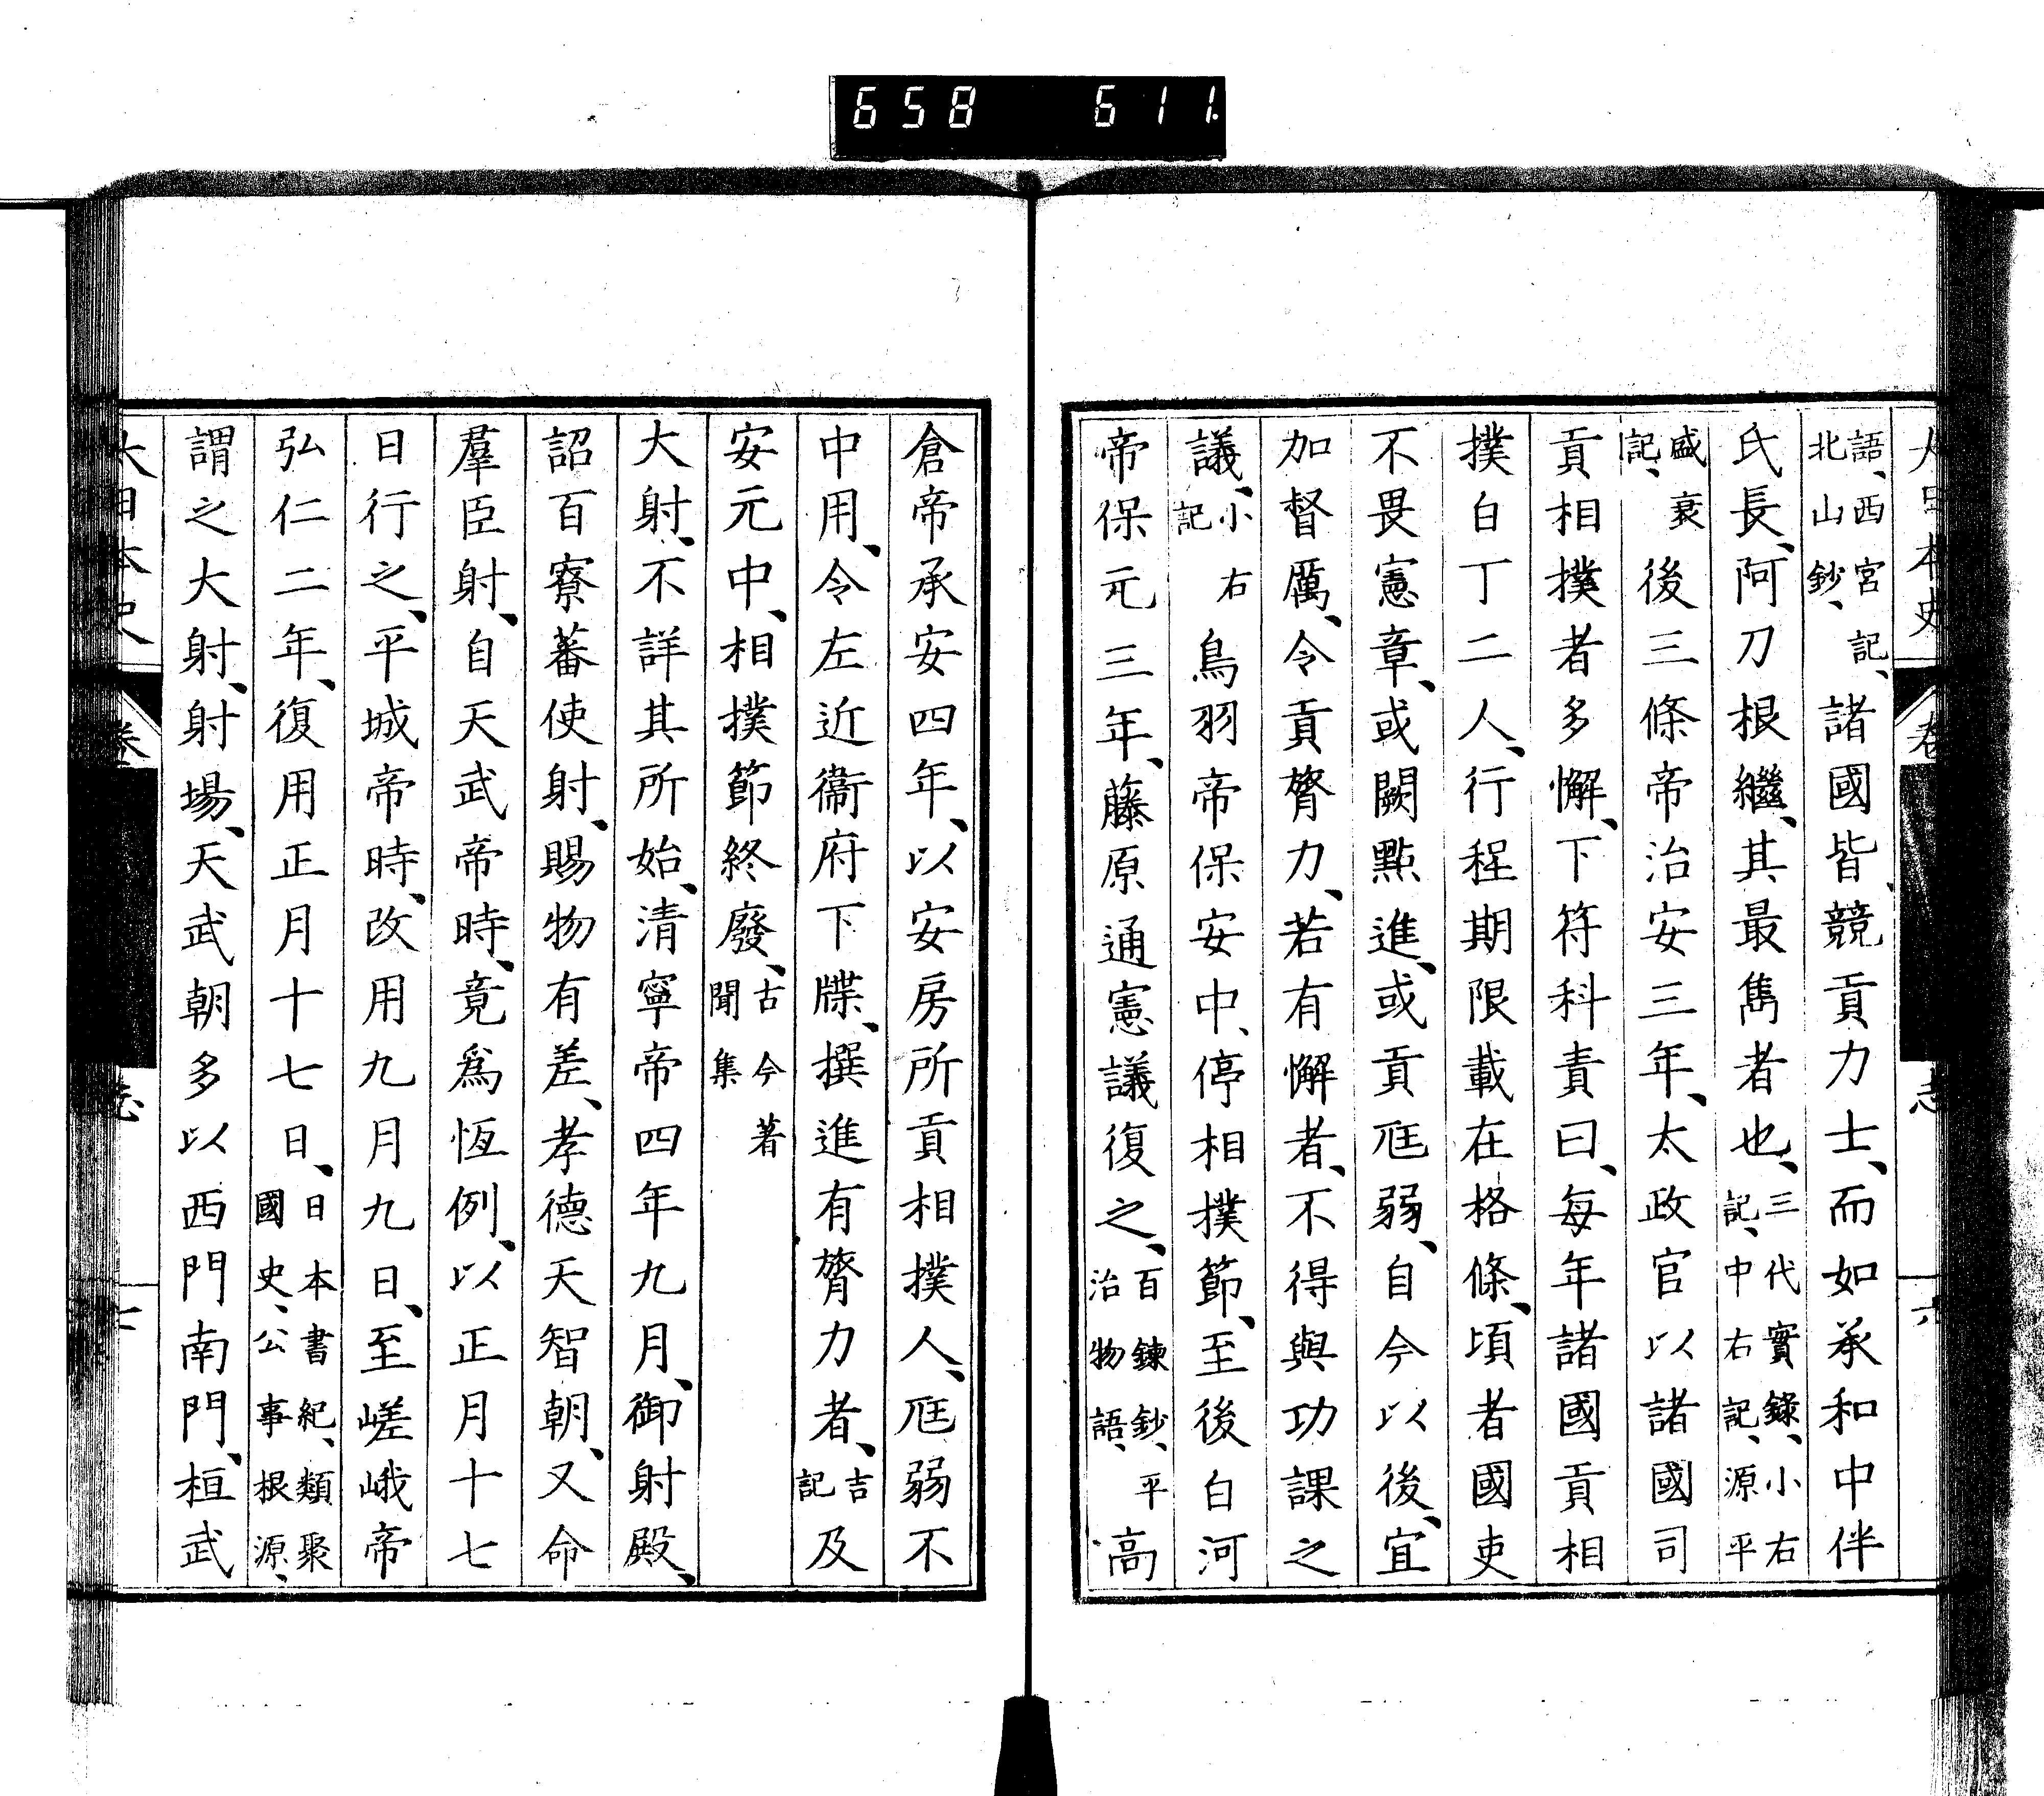 658 611.
語、西宮記、北山鈔、諸國皆競貢力士、而如承和中伴
氏長、阿刀根繼、其最雋者也、三代實錄、小右記、中右記、源平
盛衰記、後三條帝治安三年、太政官以諸國司
貢相撲者多懈、下符科責曰、每年諸國貢相
撲白丁二人、行程期限載在格條、頃者國吏
不畏憲章、或闕點進、或貢尫弱、自今以後、宜
加督厲、令貢膂力、若有懈者、不得與功課之
議、小右記鳥羽帝保安中、停相撲節、至後白河
帝保元三年、藤原通憲議復之、百鍊鈔、平治物語、高
倉帝承安四年、以安房所貢相撲人、尫弱不
中用、令左近衞府下牒、撰進有膂力者、吉記及
安元中、相撲節終廢、古今著聞集
大射、不詳其所始、清寧帝四年九月、御射殿、
詔百寮蕃使射、賜物有差、孝德天智朝、又命
羣臣射、自天武帝時、竟爲恆例、以正月十七
日行之、平城帝時、改用九月九日、至嵯峨帝
弘仁二年、復用正月十七日、日本書紀、類聚國史、公事根源、
謂之大射、射場、天武朝多以西門南門、桓武
大日本史